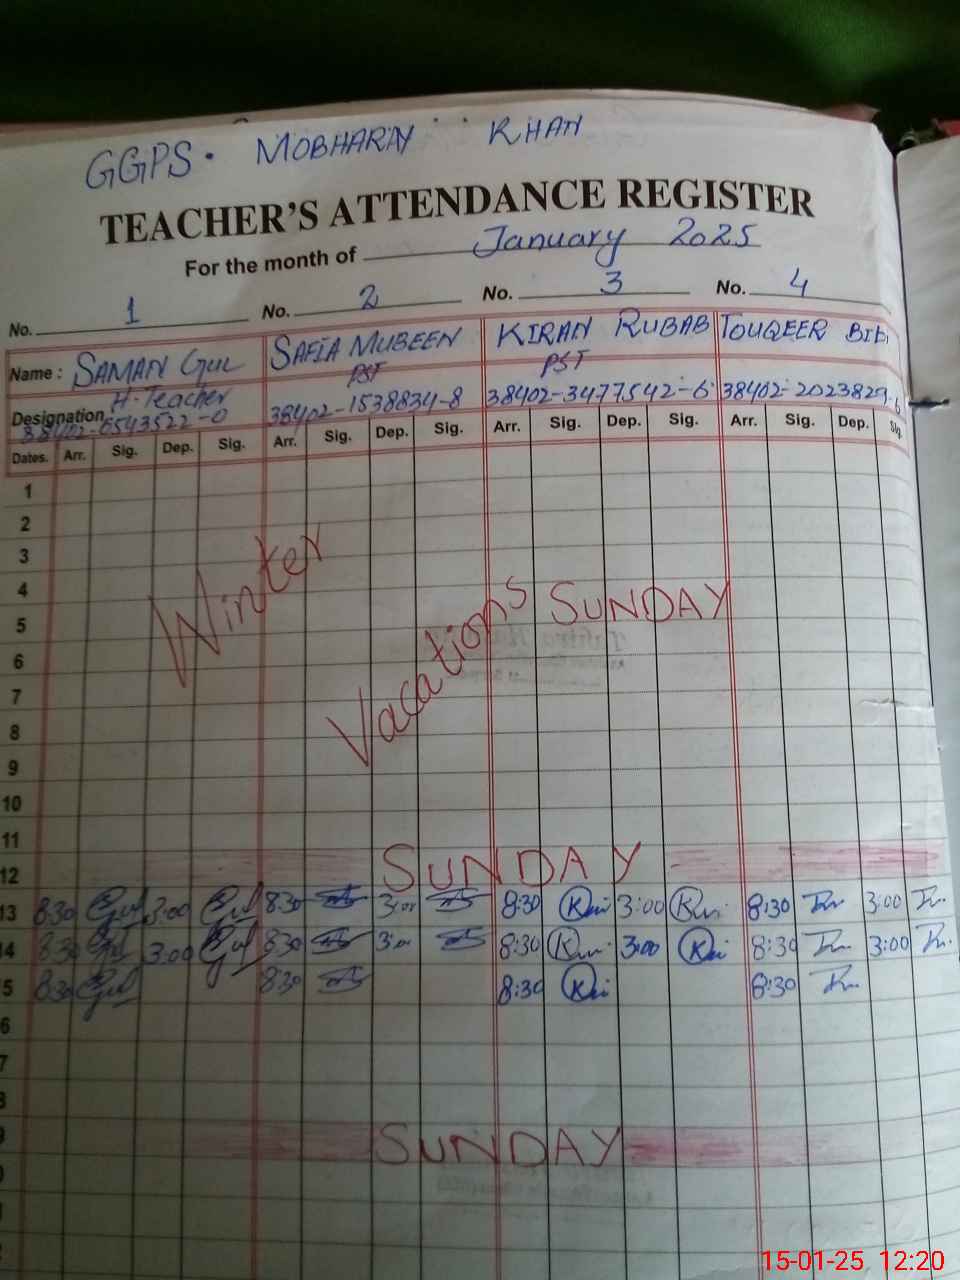 GGPS. MOBHARAY KHAN
TEACHER'S ATTENDANCE REGISTER
For the month of January 2025
No. 1 No. 2 No. 3 No. 4
Name: SAMAN GUL SAFIA MUBEEN KIRAN RUBAB TOUQEER BIBI
Designation H.Teacher PST PST
38402-6543522-0 38402-1538834-8 38402-3477542-6 38402-2023829-6
Dates. Arr. Sig. Dep. Sig. Arr. Sig. Dep. Sig. Arr. Sig. Dep. Sig. Arr. Sig. Dep. Sig.
1
2
3
Winter
4
Vacations SUNDAY
5
6
7
8
9
10
11
12 SUNDAY
13 8:30 Gul 3:00 Gul 8:30 3:00 8:30 3:00 8:30 3:00
14 8:30 Gul 3:00 Gul 8:30 3:00 8:30 3:00 8:30 3:00
5 8:30 Gul 8:30 8:30 8:30
6
7
8
9 SUNDAY
0
15-01-25 12:20